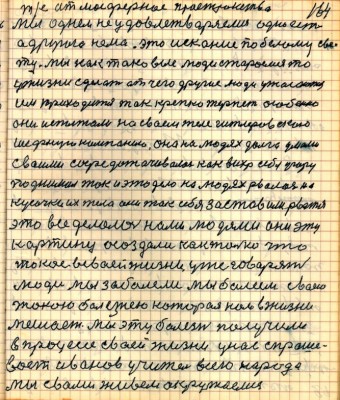 т/е атмосферное пространства 134
мы однем не удовлетваряемся одно есть
а другога нема. это искание по белому све-
ту. мы как таковые люди стараемся то
у жизни сделат от чего другие люди ужасаются
им приходится так крепко терпет особенно
они испытали на своем теле гитлеровскою
шедшую кампанию, она на людях долга
своими сосредотачивалас как вихр себя
поднимал так и это дело на людях рвалася на
кусочки их тела они так себя заставили рватся
это все делалос нами людями они эту
картину создали как только что
такое бывает в жизни уже говарят
люди мы заболели мы болеем своею
такою болезнею которая нам в жизни
мешает. мы эту болезн получили
в процесе своей жизни у нас спраши-
вает иванов учител всего народа
мы с вами живем окружаемся